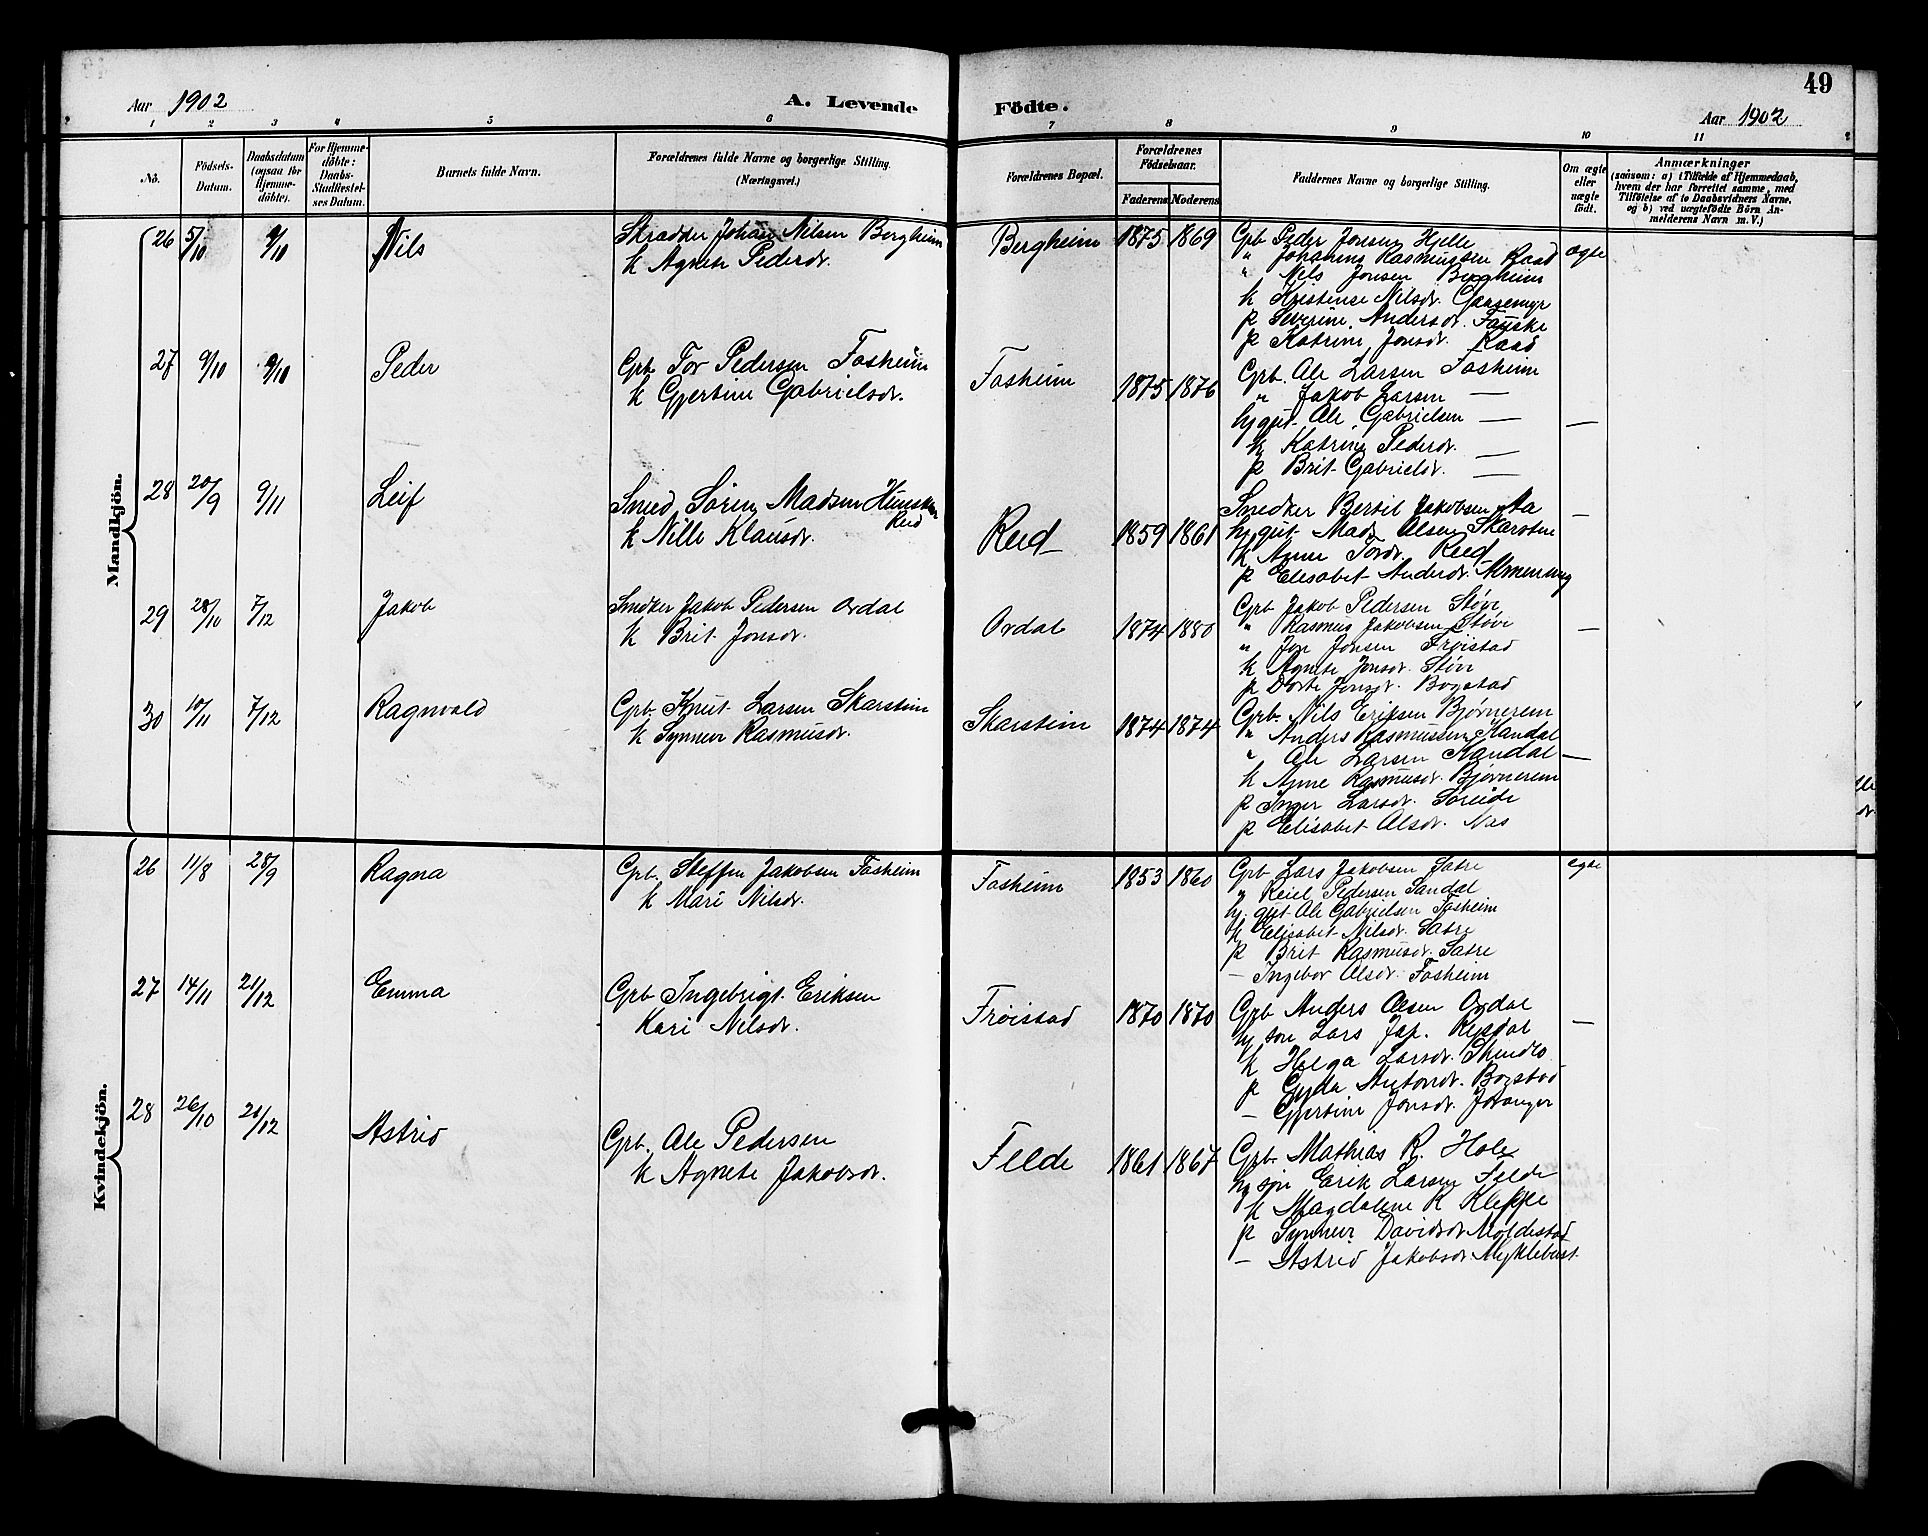 49
Aar 1902
A. Levende Födte.
Aar 1902
1 2 3 4 5 6 7 8 9 10 11
No.
Födsels-Datum.
Daabsdatum (ogsaa for Hjemme-döbte).
For Hjemme-döbte: Daabs-Stadfæstel-ses Datum.
Barnets fulde Navn.
Forældrenes fulde Navne og borgerlige Stilling.
(Næringsvei.)
Forældrenes Bopæl.
Forældrenes Födselsaar.
Faderens Moderens
Faddernes Navne og borgerlige Stilling.
Om ægte eller uægte födt.
Anmærkninger
(saasom: a) i Tilfælde af Hjemmedaab,
hvem der har forrettet samme, med
Tilföielse af to Daabsvidners Navne,
og b) ved uægtefödte Börn An-
melderens Navn m. V.)
Mandkjön.
26 5/10 9/10 Nils
Skrædder Johan Nilsen Bergheim
k Agnete Pedersdr.
Bergheim 1875 1869
Grb Peder Jonsen Hjelle
" Johannes Rasmussen Raad
" Nils Jonsen Bergheim
k Kristense Nilsdr. Gaasemyr
p Severine Andersdr. Fauske
p Katrine Jonsdr. Raad
ægte
27 9/10 9/10 Peder
Grb. Tor Pedersen Fosheim
k Gjertine Gabrielsdr.
Fosheim 1875 1876
Grb. Ole Larsen Fosheim
" Jakob Larsen —
hg gut. Ole Gabrielsen —
k Katrine Pedersdr. —
p Brit Gabrielsdr. —
—
28 20/9 9/11 Leif
Smed Sören Madsen
Reed
k Nille Klausdr.
Reed 1859 1861
Snedker Bertil Jakobsen Aa
hg. gut. Mads Olsen Skarsten
k Anne Tordr. Reed
p Elisabet Andersdr.
—
29 28/10 7/12 Jakob
Snedker Jakob Pedersen Ordal
k Brit Jonsdr.
Ordal 1874 1880
Grb Jakob Pedersen Støvr
" Rasmus Jakobsen Støvr
" Jon Jonsen Frøistad
k Agnete Jonsdr. Støvr
p Dorte Jonsdr. Bogstad
—
30 10/11 7/12 Ragnvald
Grb. Knut Larsen Skarstein
k Synneve Rasmusdr.
Skarstein 1874 1874
Grb. Nils Eriksen Bjørnerem
" Anders Rasmussen Kandal
" Ole Larsen Kandal
k Anne Rasmusdr. Bjørnerem
p Inger Larsdr. Søreide
p Elisabet Olsdr. Nes
—
Kvindekjön.
26 11/8 28/9 Ragna
Grb. Steffen Jakobsen Fosheim
k Mari Nilsdr.
Fosheim 1853 1860
Grb Lars Jakobsen Sætre
" Reiel Pedersen Sandal
hg. gut Ole Gabrielsen Fosheim
k Elisabet Nilsdr. Sætre
p Brit Rasmusdr. Sætre
— Ingebor Olsdr. Fosheim
ægte
27 14/11 21/12 Emma
Grb Ingebrigt Eriksen
Kari Nilsdr.
Frøistad 1870 1870
Grb Anders Olsen Ordal
hg søn Lars Jap. Rysdal
k Helga Larsdr. Skindlo
p Gyda Antonsdr. Bogstad
— Gjertine Jonsdr. Joranger
—
28 26/10 21/12 Astrid
Grb. Ole Pedersen
k Agnete Jakobsdr.
Felde 1861 1867
Grb. Mathias R. Hole
hg søn Erik Larsen Felde
k Magdalene R Kleppe
p Synneve Davidsdr Moldestad
— Astrid Jakobsdr. Myklebust